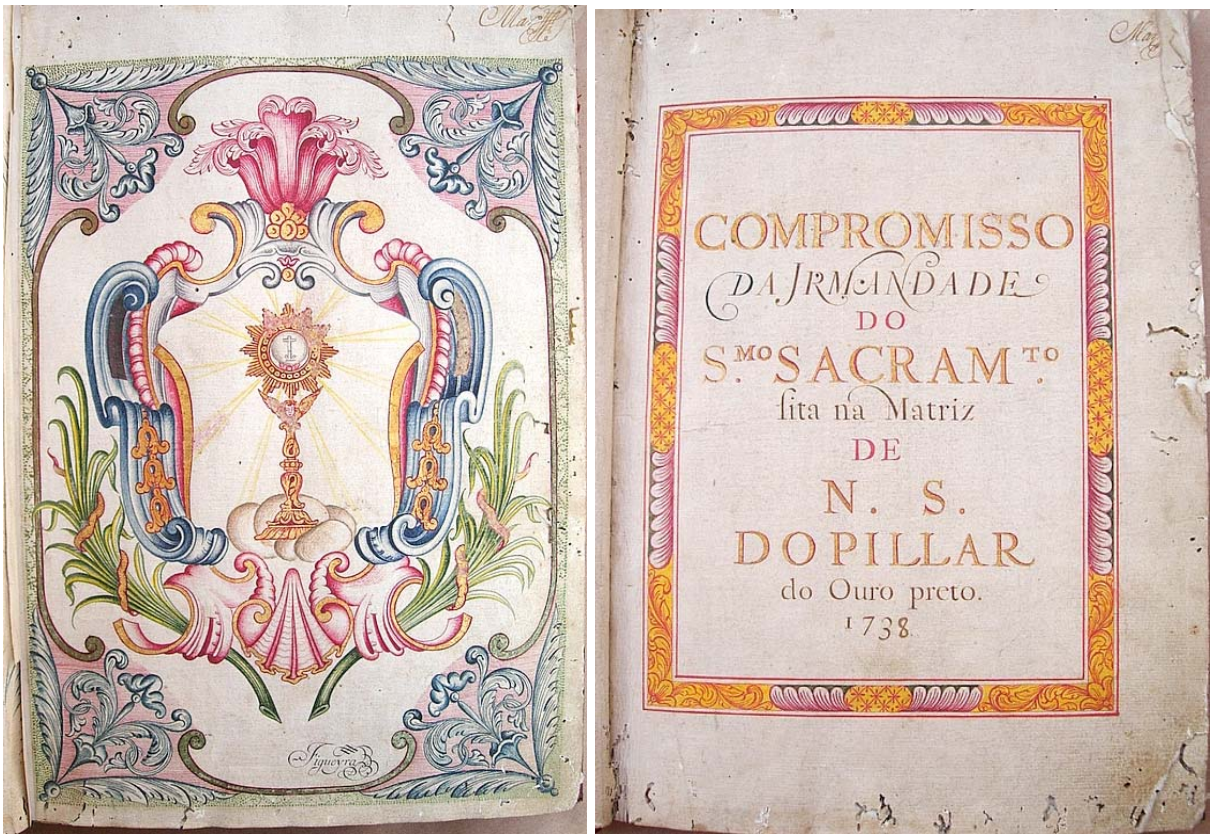 Figueyra
COMPROMISSO
DA JRMANDADE
DO
S.ᴹᴼ SACRAMᵀᴼ.
ſita na Matriz
DE
N. S.
DOPILLAR
do Ouro preto.
1738.